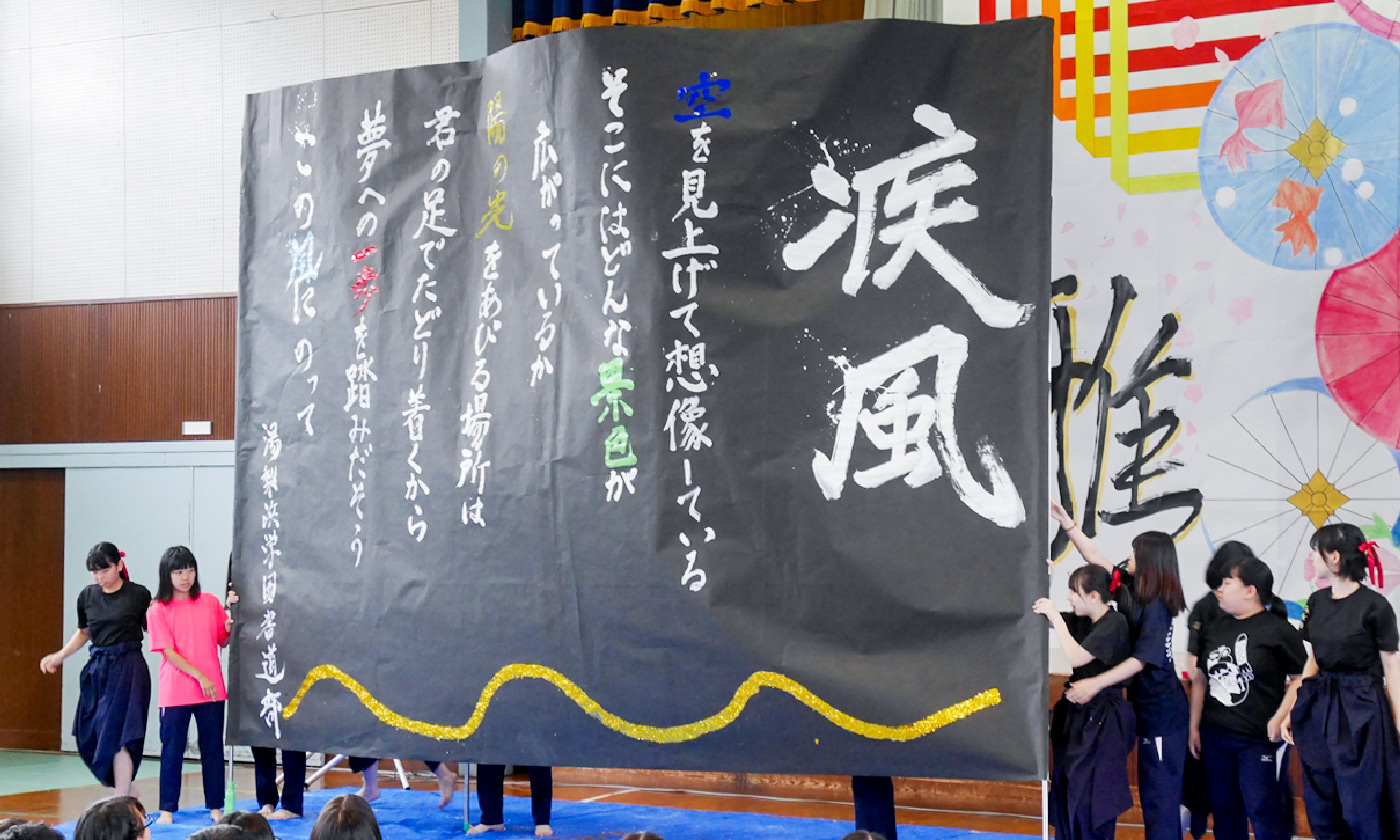 疾風
空を見上げて想像している
そこにはどんな景色が
広がっているか
陽の光をあびる場所は
君の足でたどり着くから
夢への一歩を踏みだそう
この風にのって
湯梨浜学園書道部
雅